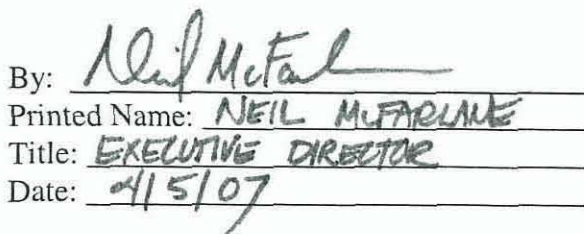 By: Neil McFarlane
Printed Name: NEIL MCFARLANE
Title: EXECUTIVE DIRECTOR
Date: 4/5/07